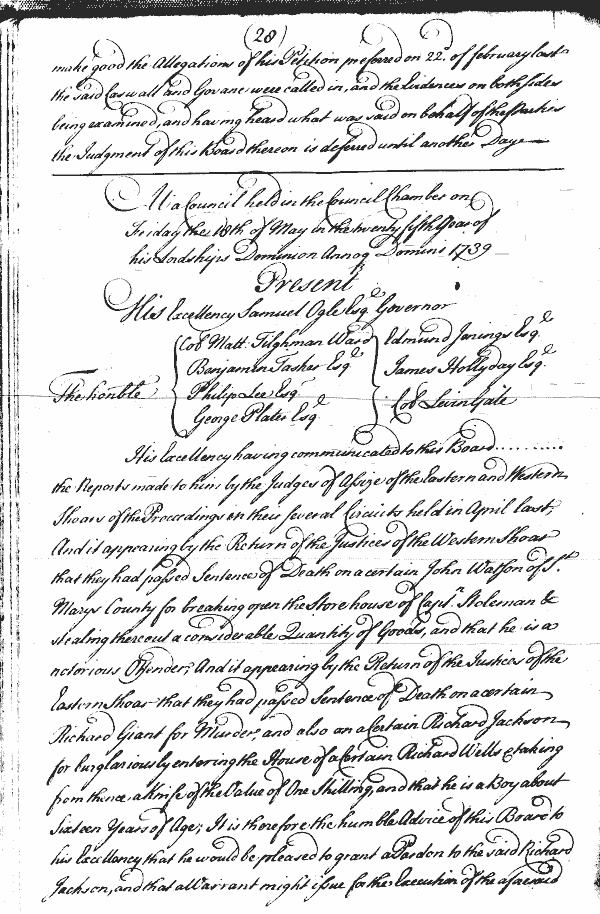 (28)
make good the Allegations of his Petition preferred on 22d. of february last
the said Coswall and Govane were called in, and the Evidences on both sides
being examined, and having heard what was said on behalf of the Parties
the Judgment of this Board thereon is deferred until another Day
At a Council held in the Council Chamber on
Friday the 18th of May in the twenty fifth Year of
his Lordships Dominion Annoq Domini 1739
Present
His Excellency Samuel Ogle Esqr. Governor
Col Matt. Tilghman Ward Edmund Jenings Esqr.
Benjamin Tasker Esqr. James Hollyday Esqr.
The honble Philip Lee Esqr. Col Levin Gale
George Plater Esqr.
His Excellency having communicated to this Board..........
the Reports made to him by the Judges of Assize of the Eastern and Western
Shoars of the Proceedings in their several Circuits held in April last,
And it appearing by the Return of the Justices of the Western Shoar
that they had passed Sentence of Death on a certain John Watson of St.
Marys County for breaking open the Storehouse of Capt. Stoleman &
stealing thereout a considerable Quantity of Goods, and that he is a
notorious Offender; And it appearing by the Return of the Justices of the
Eastern Shoar that they had passed Sentence of Death on a certain
Richard Giant for Murder, and also on a Certain Richard Jackson
for burglariously entering the House of a Certain Richard Wells & taking
from thence a Knife of the Value of One Shilling, and that he is a Boy about
Sixteen Years of Age; It is therefore the humble Advice of this Board to
his Excellency that he would be pleased to grant a Pardon to the said Richard
Jackson, and that a Warrant might issue for the Execution of the aforesaid